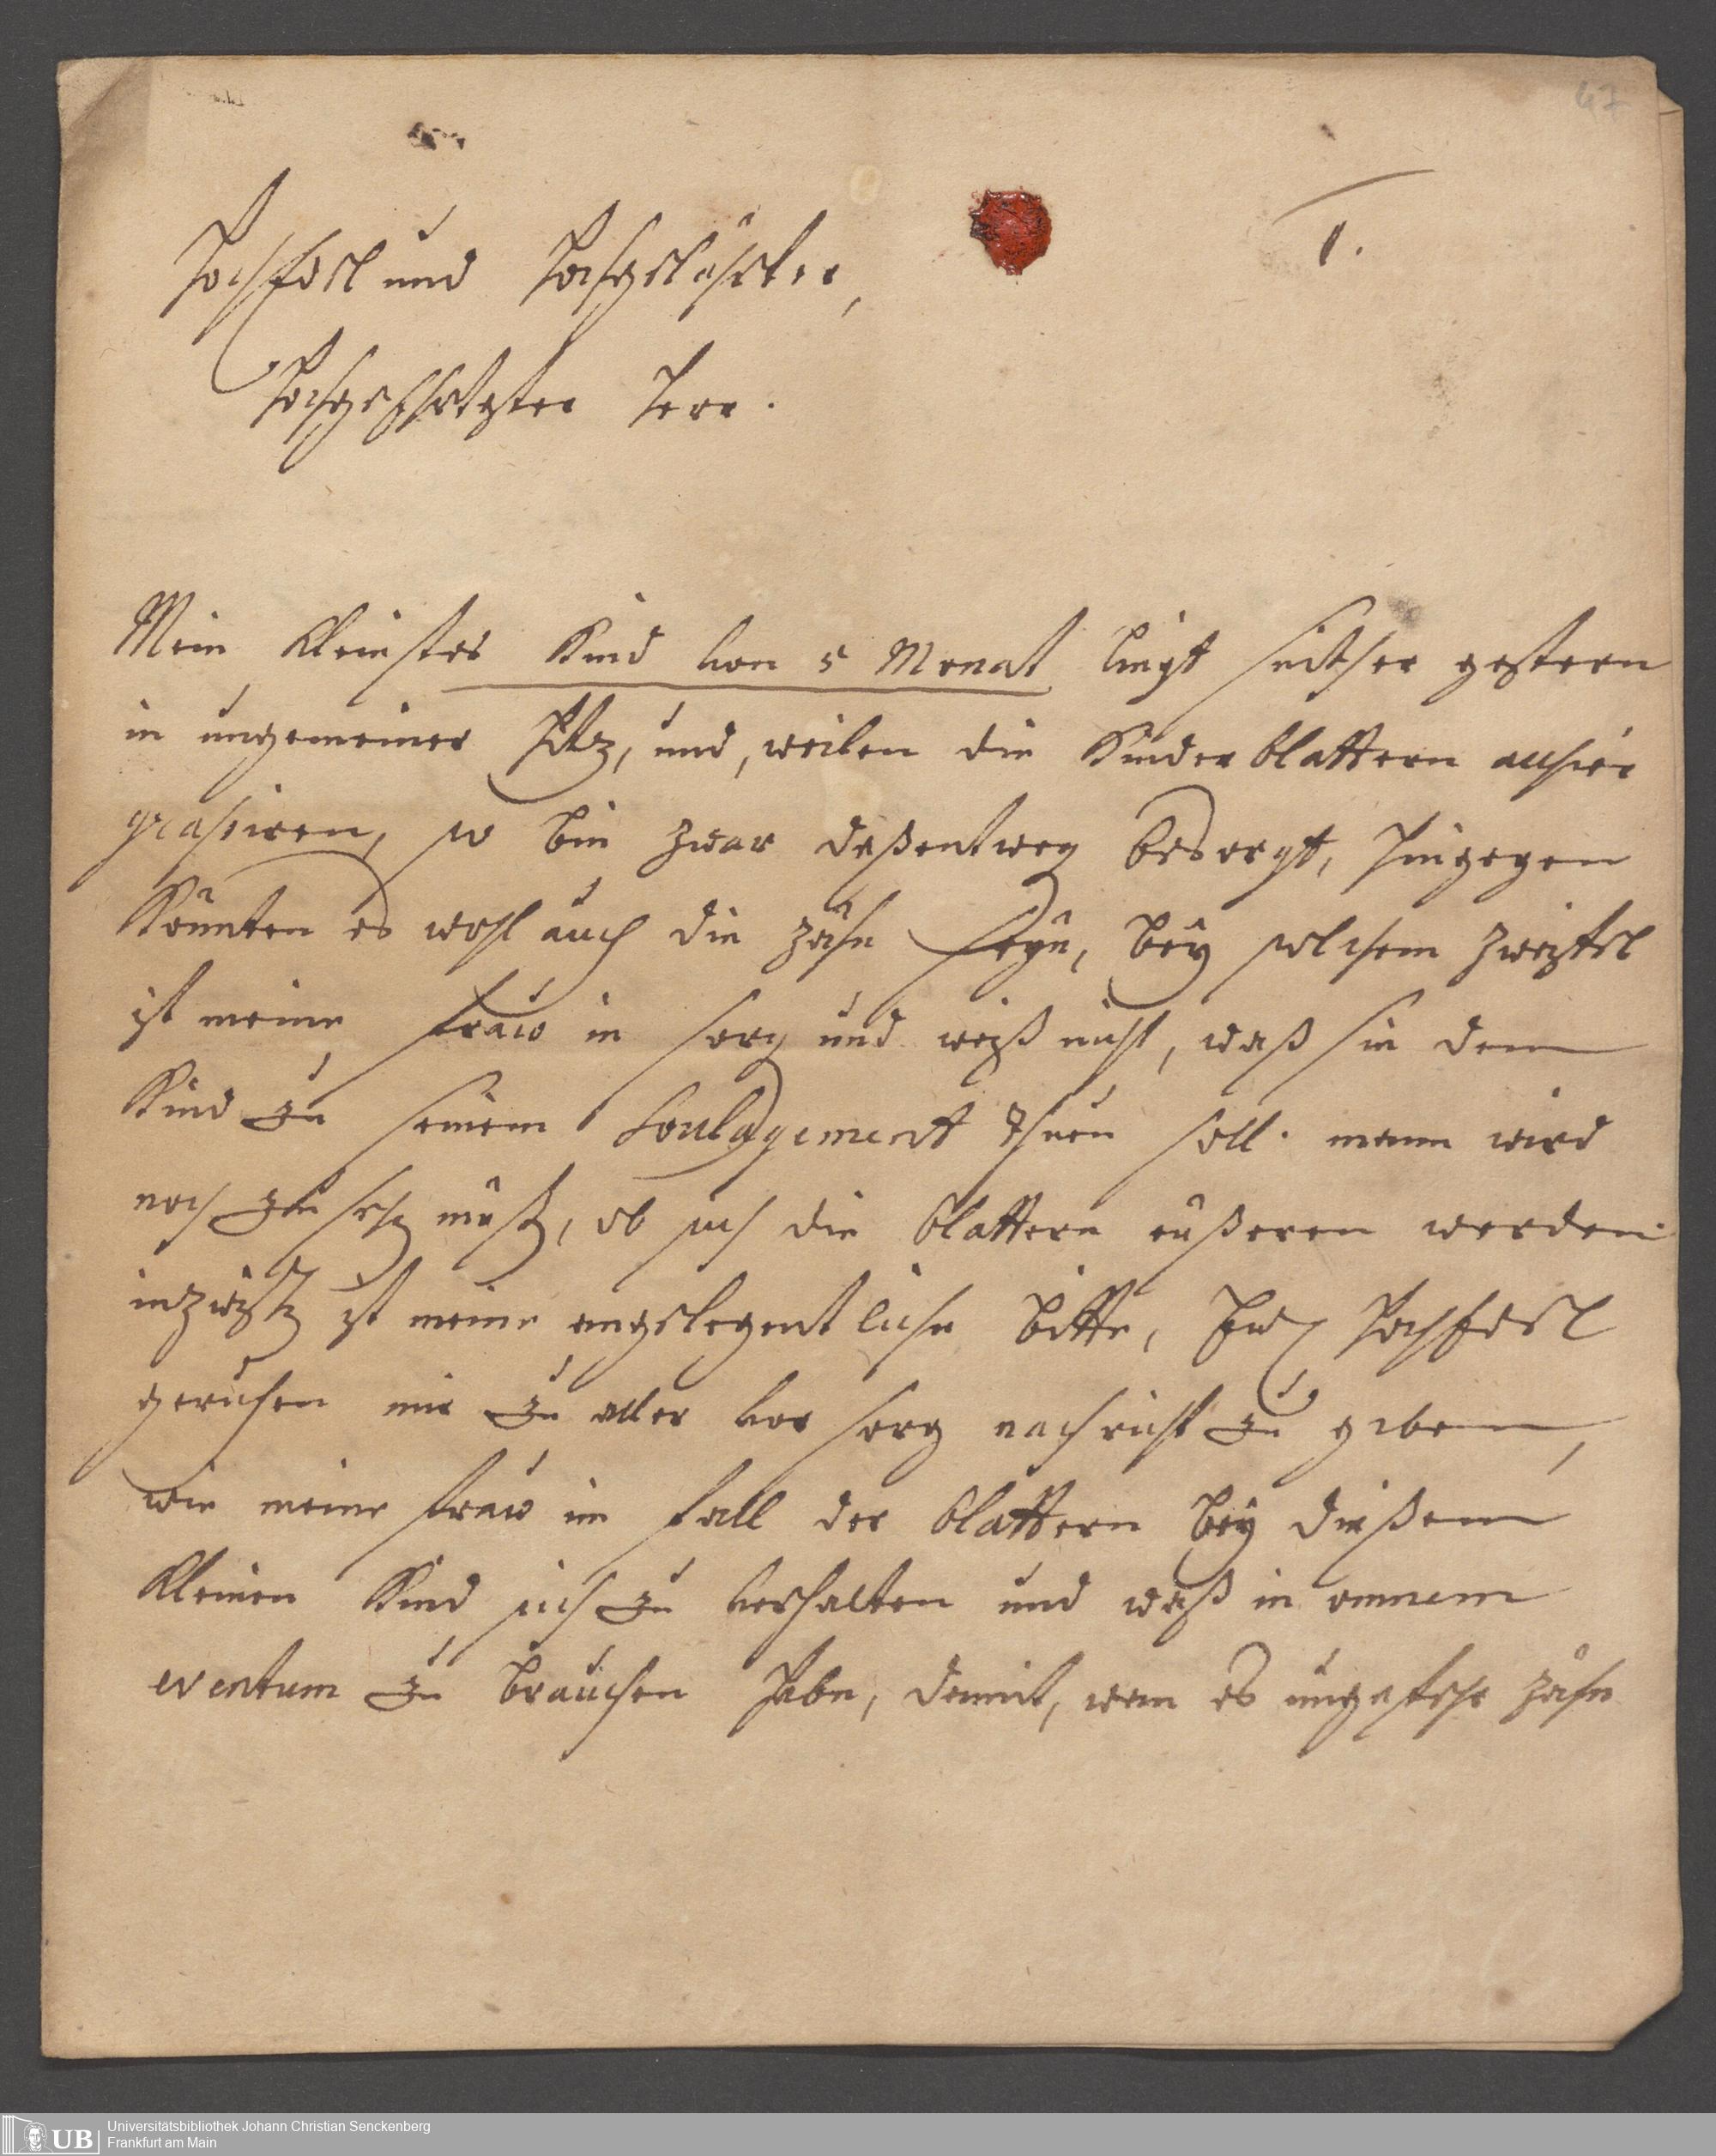 47
1.
Hochedel und Hochgelährter,
Hochgeschätzter Herr.
Mein kleinstes Kind von 5 Monat liegt seither gestern
in ungemeiner Hitz, und, weilen die Kinderblattern allhier
grasiren, so bin zwar deßentweg besorgt, hingegen
könnten es wohl auch die zähn seyn, bey solchem zweiffel
ist meine fraw in sorg und weiß nicht, waß sie dem
Kind zu seinem Soulagement thuen soll. mann wird
noch zu sehen müßen, ob sich die blattern eüßeren werden.
inzwischen ist meine angelegentliche bitte, Ew. Hochedel
geruhen mir zu aller vorsorg nachricht zu geben,
wie meine fraw im fall der blattern bey dießem
kleinen Kind sich zu verhalten und waß in omnem
eventum zu brauchen habe, damit, wen es ungefehr zähn
Universitätsbibliothek Johann Christian Senckenberg
Frankfurt am Main
UB